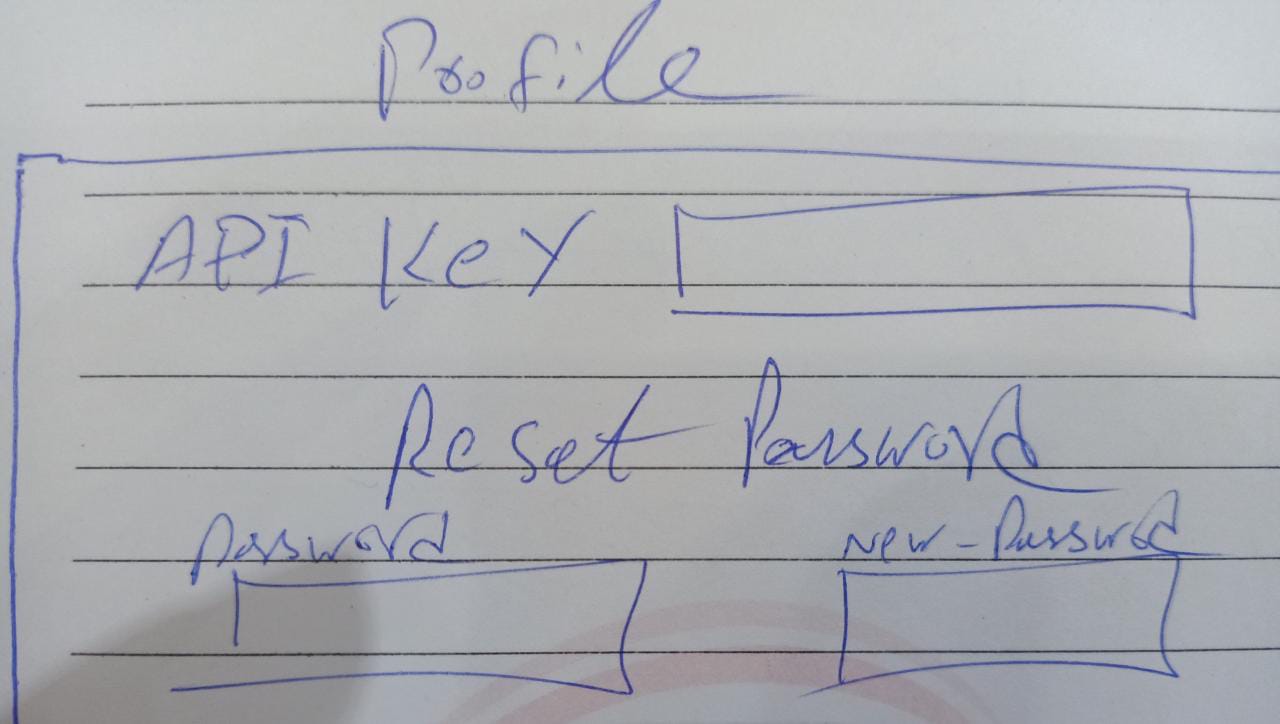 Profile
API Key
Reset Password
Password
New-Password